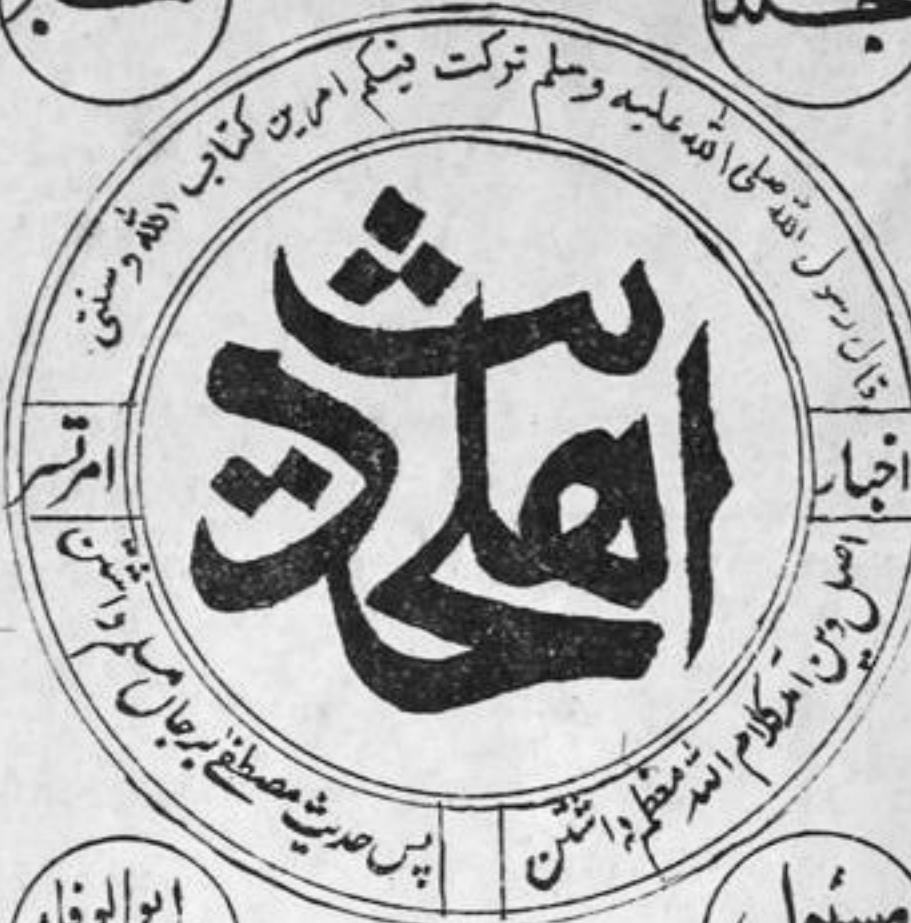 قال رسول اللہ صلی اللہ علیہ وسلم ترکت فیکم امرین کتاب اللہ و سنتی
اخبار
اھلحدیث
امرتسر
اصل دین آمد کلام اللہ معظم داشتن
پس حدیث مصطفےٰ بر جاں مسلم داشتن
ابوالوفاء